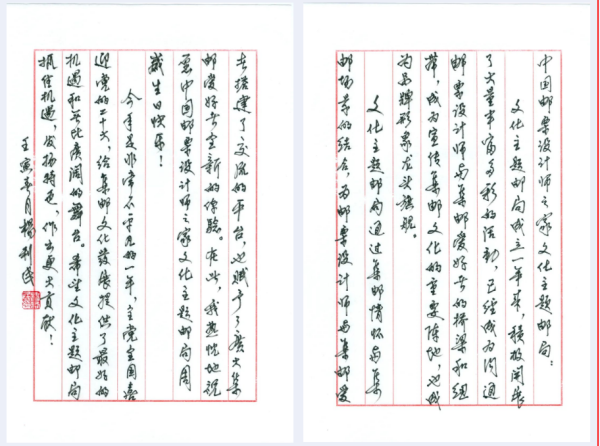 中国邮票设计师之家文化主题邮局：
文化主题邮局成立一年来，积极开展
了大量丰富多彩的活动，已经成为沟通
邮票设计师与集邮爱好者的桥梁和纽
带，成为宣传集邮文化的重要阵地，也成
为品牌形象龙头旗舰。
文化主题邮局通过集邮情怀与集
邮场景的结合，为邮票设计师与集邮爱
者搭建了交流的平台，也赋予了广大集
邮爱好者全新的体验。在此，我想愉地说
中国邮票设计师之家文化主题邮局周
岁生日快乐！
今年是非常不平凡的一年，全党全国喜
迎党的二十大，给集邮文化发展提供了最好的
机遇和无比广阔的舞台。希望文化主题邮局
抓住机遇，发扬特色，作出更大贡献！
壬寅年月杨利民